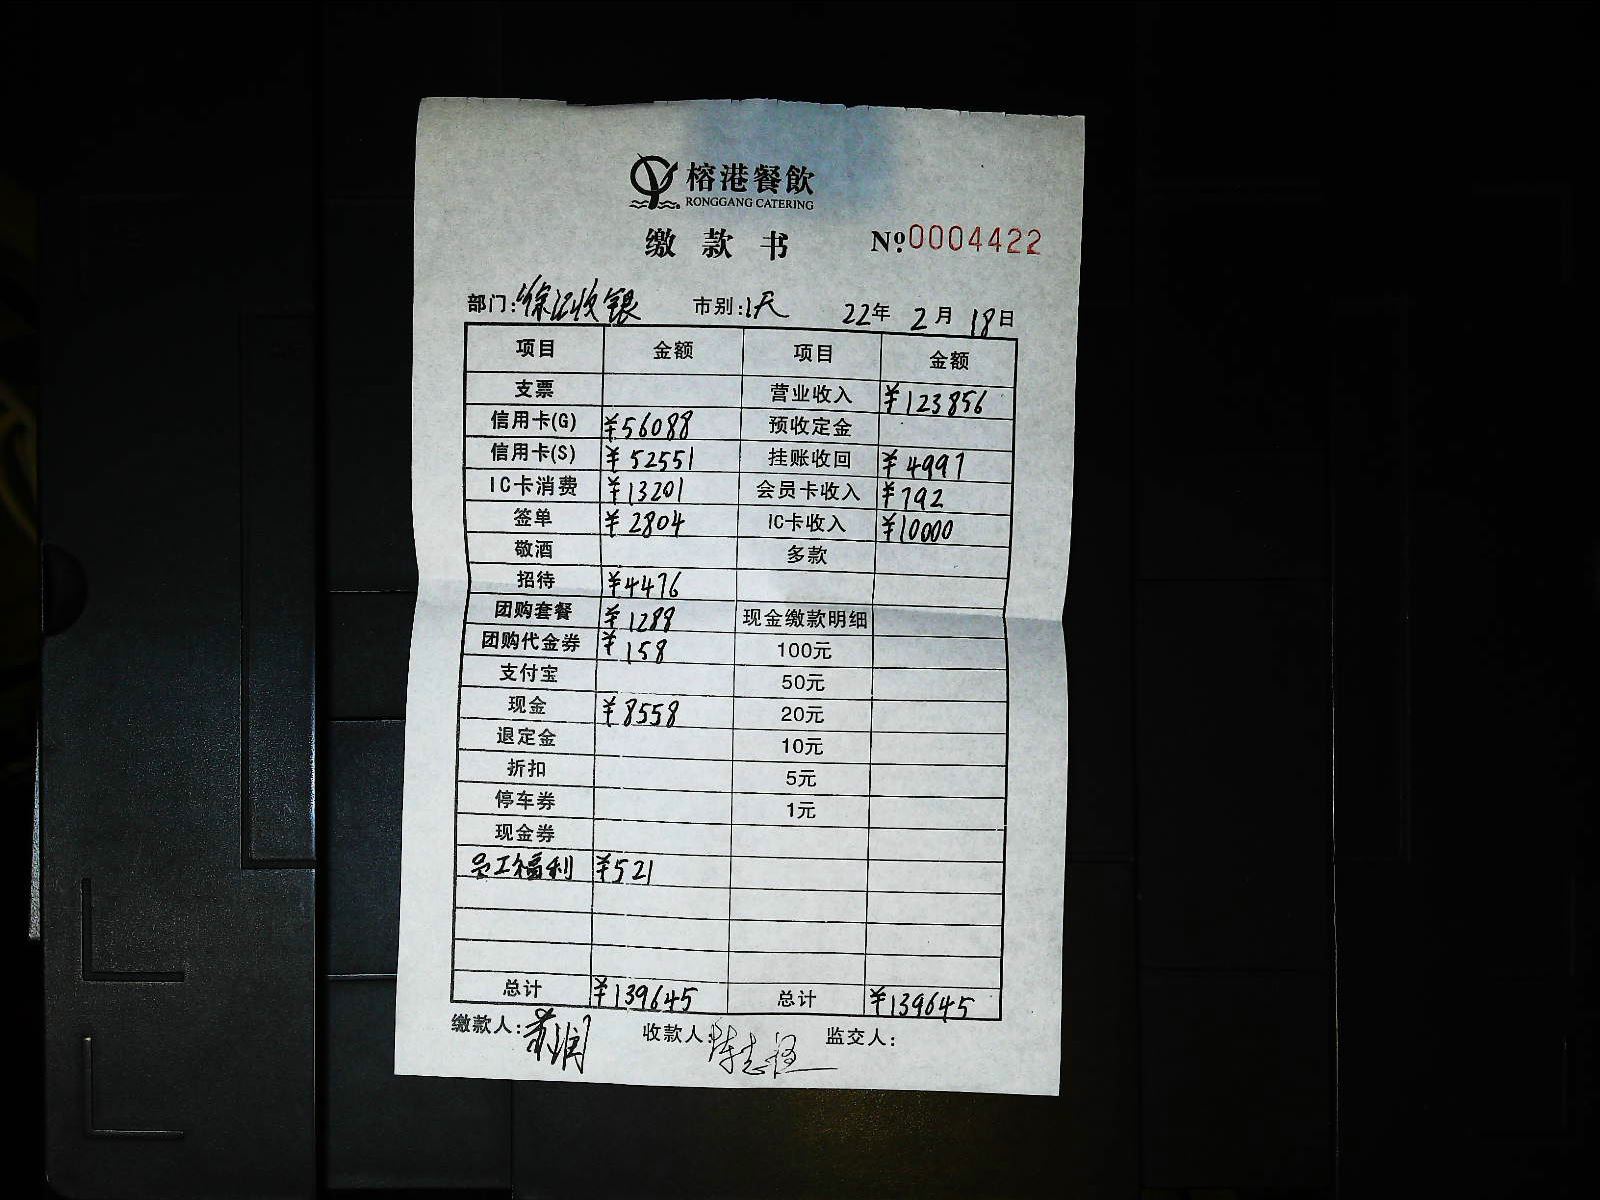 榕港餐飲
RONGGANG CATERING
缴款书 №0004422
部门:徐汇收银 市别:1天 22年 2月 18日
项目 金额 项目 金额
支票 营业收入 ¥123856
信用卡(G) ¥56088 预收定金
信用卡(S) ¥52551 挂账收回 ¥4997
IC卡消费 ¥13201 会员卡收入 ¥792
签单 ¥2804 IC卡收入 ¥10000
敬酒 多款
招待 ¥4476
团购套餐 ¥1288 现金缴款明细
团购代金券 ¥158 100元
支付宝 50元
现金 ¥8558 20元
退定金 10元
折扣 5元
停车券 1元
现金券
员工福利 ¥521
总计 ¥139645 总计 ¥139645
缴款人: 收款人: 陈志 监交人: